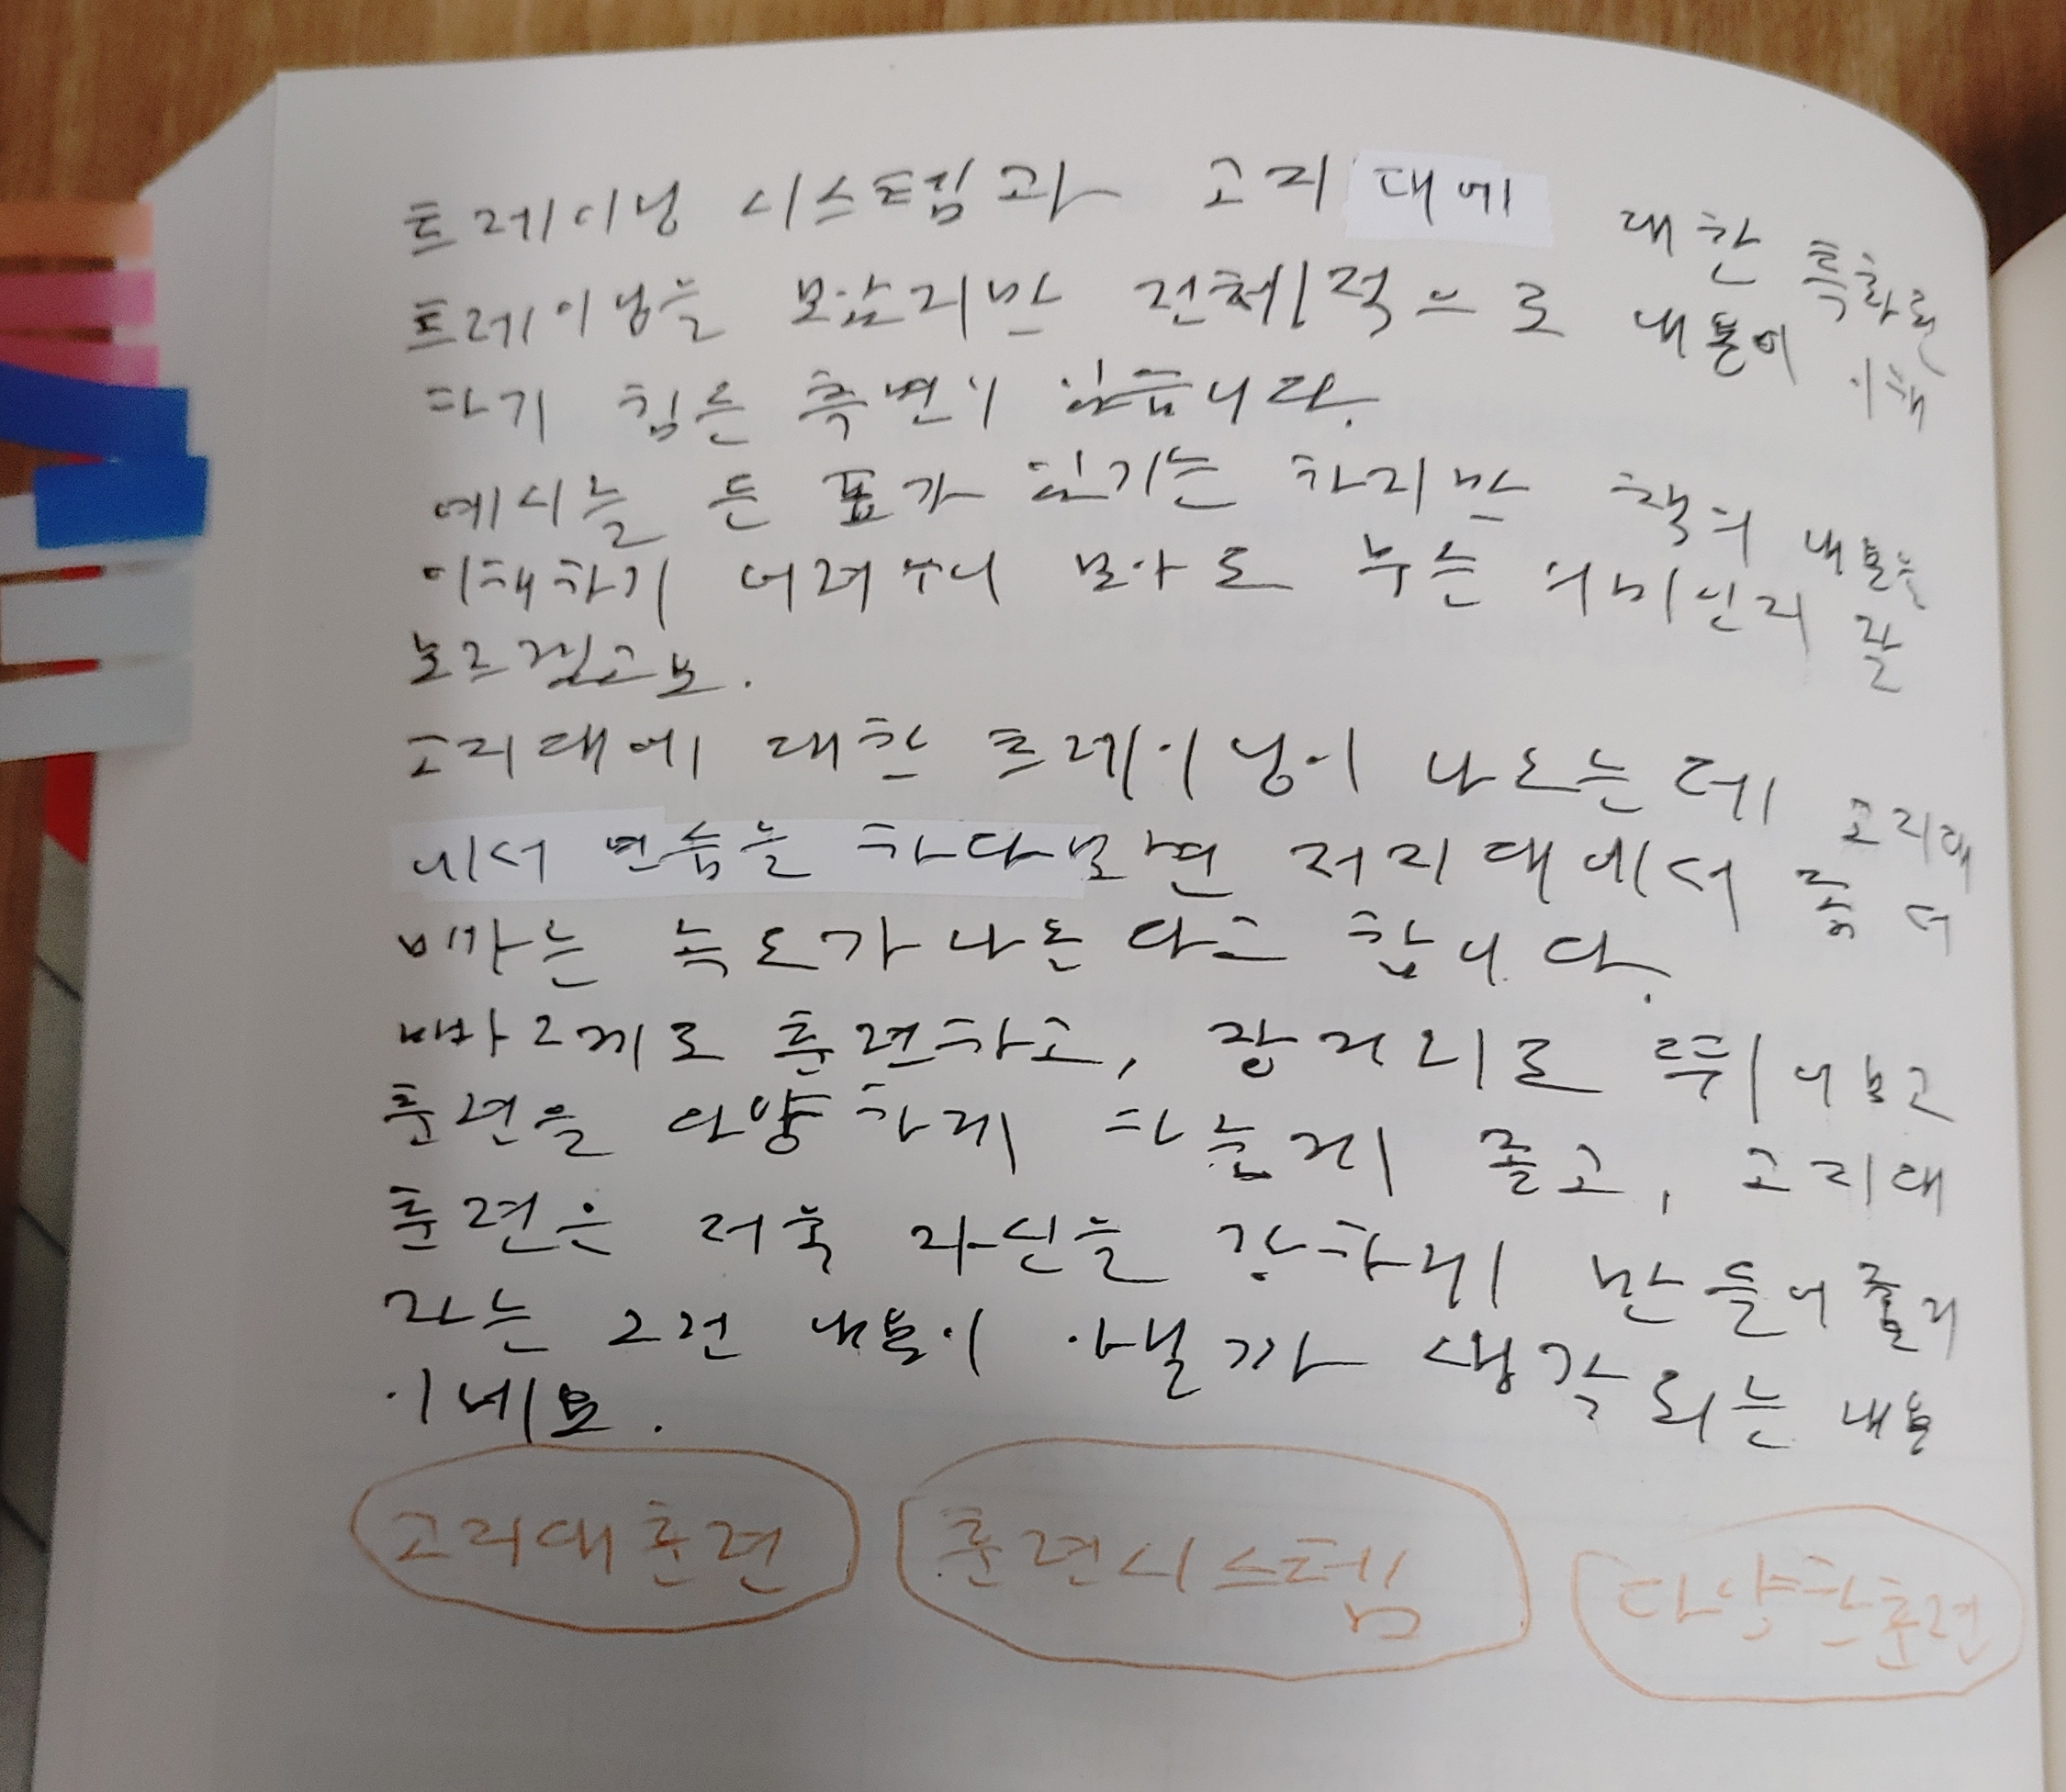 트레이닝 시스템과 고지대에 대한 특화된
트레이닝을 모았지만 전체적으로 내용이 이해
하기 힘든 측면이 있습니다.
예시를 든 표가 있기는 하지만 책의 내용을
이해하기 어려우니 보아도 무슨 의미인지 잘
모르겠고요.
고지대에 대한 트레이닝이 나오는데 고지대
에서 연습을 하다보면 저지대에서 좀 더
빠른 속도가 나온다고 합니다.
빠르게도 훈련하고, 장거리도 뛰어보고
훈련을 다양하게 하는게 좋고, 고지대
훈련은 더욱 자신을 강하게 만들어 줄거
라는 그런 내용이 아닐까 생각되는 내용
이네요.
고지대훈련 훈련시스템 다양한훈련